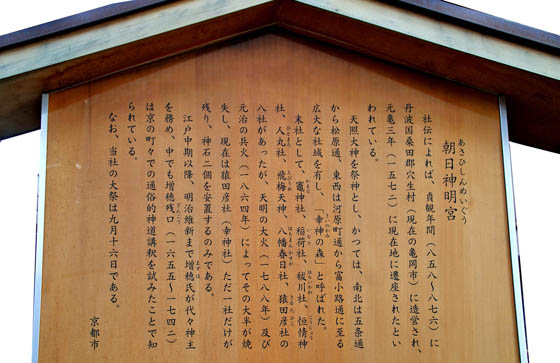 あさひしんめいぐう
朝日神明宮
社伝によれば、貞観年間（八五八〜八七六）に
丹波国桑田郡穴生村（現在の亀岡市）に造営され、
元亀三年（一五七二）に現在地に遷座されたとい
われている。
天照大神を祭神とし、かつては、南北は五条通
から松原通、東西は河原町通から富小路通に至る
広大な社域を有し、「幸神の森」と呼ばれた。
末社として、竈神社、稲荷社、祓川社、恒情神
社、人丸社、飛梅天神、八幡春日社、猿田彦社の
八社があったが、天明の大火（一七八八年）及び
元治の兵火（一八六四年）によってその大半が焼
失し、現在は猿田彦社（幸神社）ただ一社だけが
残り、神石二個を安置するのみである。
江戸中期以降、明治維新まで増穂氏が代々神主
を務め、中でも増穂残口（一六五五〜一七四二）
は京の町々での通俗的神道講釈を試みたことで知
られている。
なお、当社の大祭は九月十六日である。
京都市